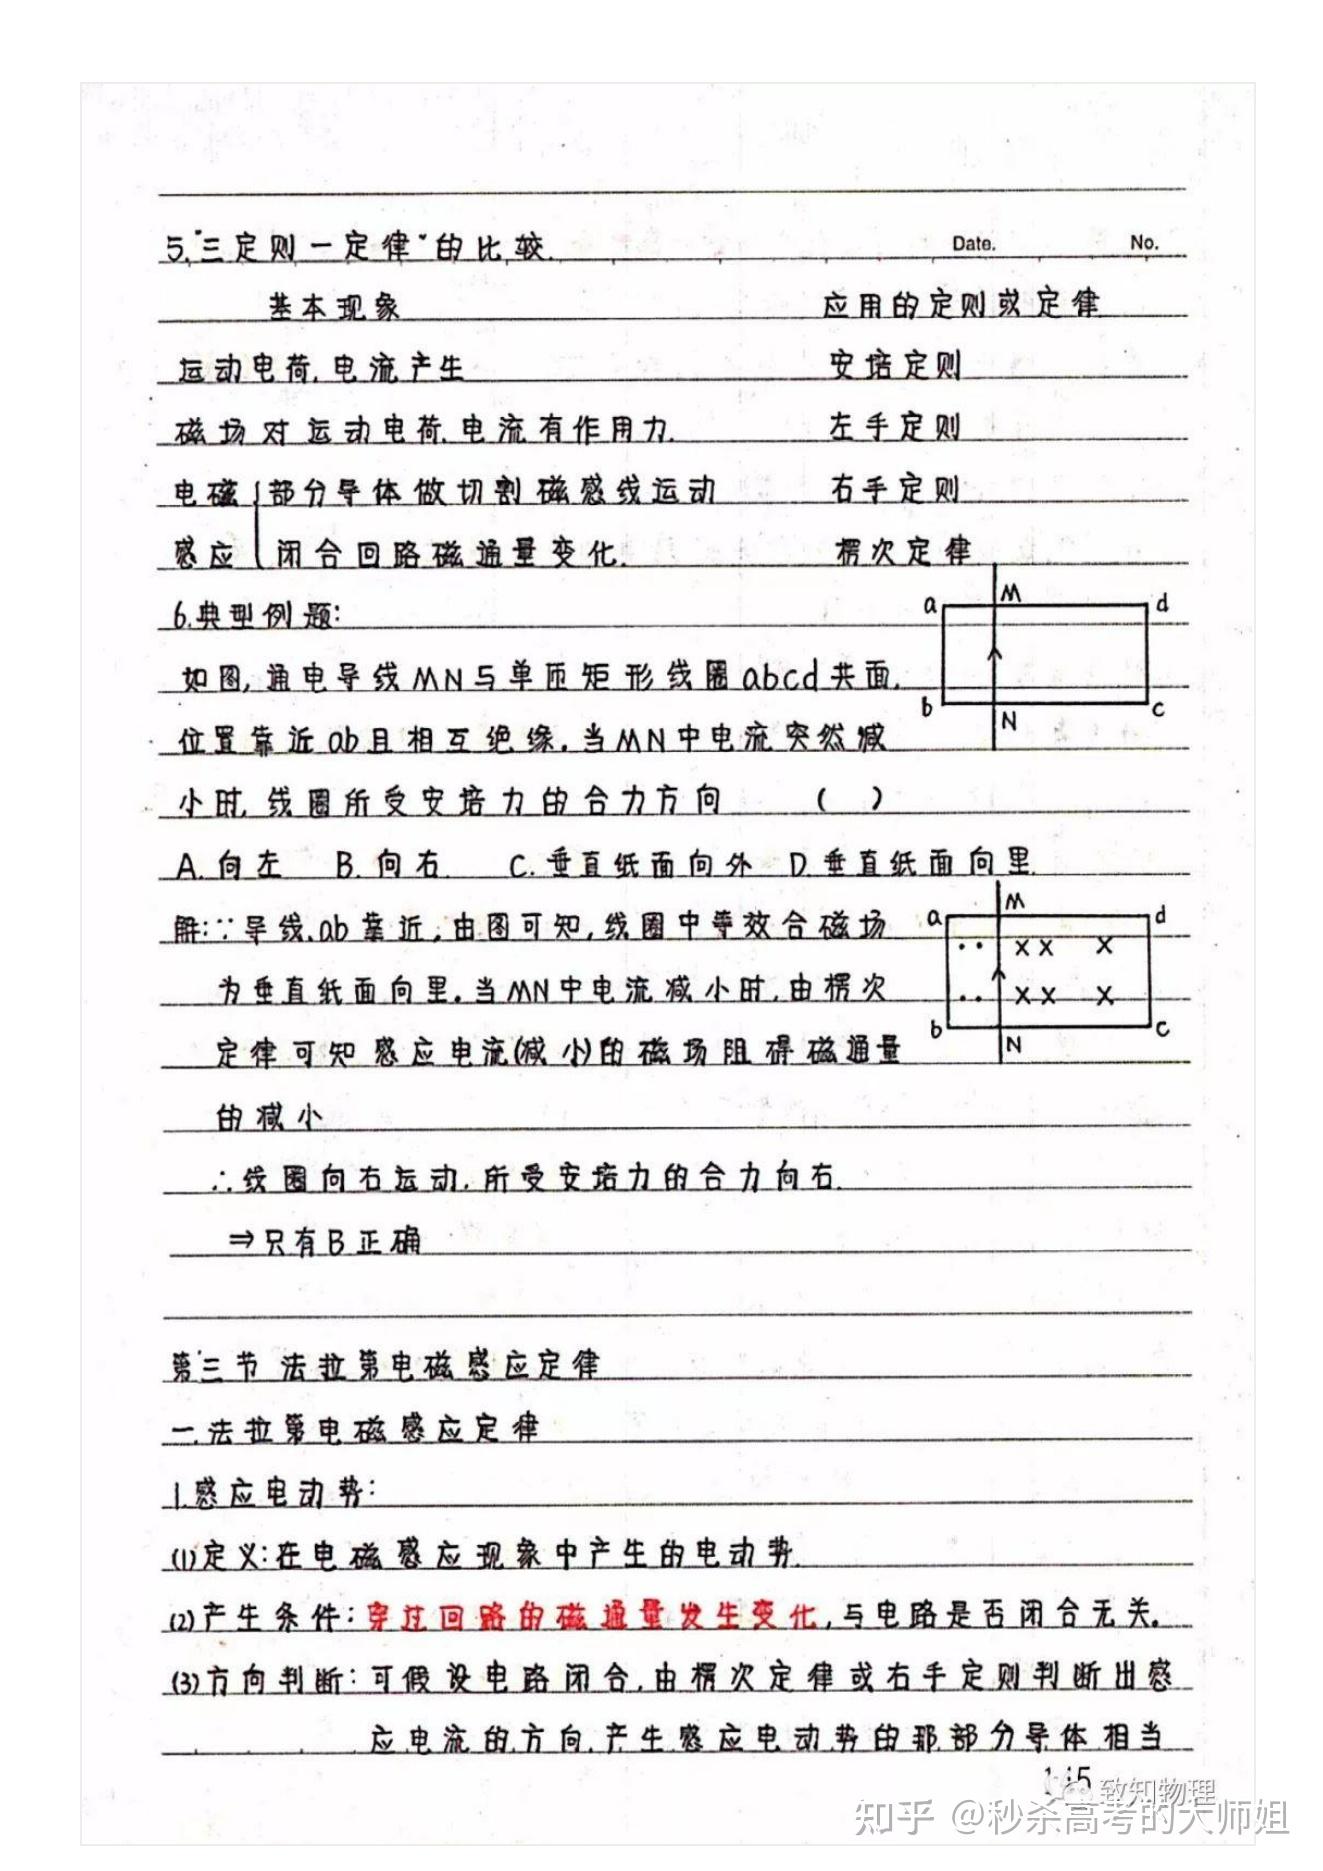 5."三定则一定律"的比较.
Date. No.
基本现象 应用的定则或定律
运动电荷.电流产生 安培定则
磁场对运动电荷.电流有作用力. 左手定则
电磁 部分导体做切割磁感线运动 右手定则
感应 闭合回路磁通量变化. 楞次定律
6.典型例题:
a M d
如图,通电导线MN与单匝矩形线圈abcd共面,
b N c
位置靠近ab且相互绝缘.当MN中电流突然减
小时,线圈所受安培力的合力方向 ( )
A.向左 B.向右 C.垂直纸面向外 D.垂直纸面向里.
a M d
解:∵导线.ab靠近,由图可知,线圈中等效合磁场
为垂直纸面向里.当MN中电流减小时,由楞次
b N c
定律可知感应电流(减小)的磁场阻碍磁通量
的减小
∴线圈向右运动.所受安培力的合力向右.
⇒只有B正确
第三节 法拉第电磁感应定律
一.法拉第电磁感应定律
1.感应电动势:
(1)定义:在电磁感应现象中产生的电动势.
(2)产生条件:穿过回路的磁通量发生变化,与电路是否闭合无关.
(3)方向判断:可假设电路闭合,由楞次定律或右手定则判断出感
应电流的方向.产生感应电动势的那部分导体相当
致知物理
知乎 @秒杀高考的大师姐